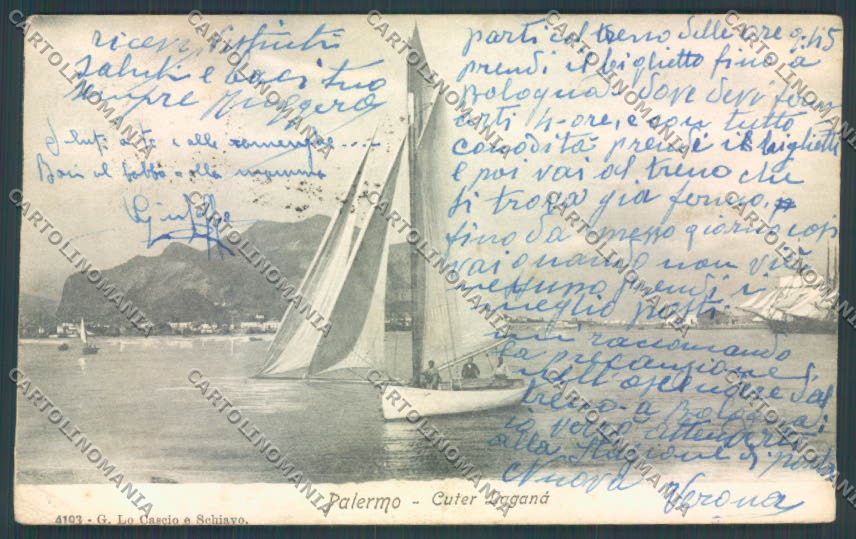 ricevi distinti
saluti e baci tuo
sempre Ruggero
Saluti a te e alle
Baci al babbo e alla mamma
parti col treno delle ore 9.45
prendi il biglietto fino a
Bologna. dove devi ferm
arti 4 ore, e con tutto
comodità prendi il biglietto
e poi vai al treno che
si trova già fermo,
fino da mezzo giorno così
vai quando non vi è
nessuno prendi i
meglio posti
mi raccomando
la precauzione
nell'ascendere dal
treno a Bologna,
io verrò attenderti
alla stazione di porta
Nuova Verona
Palermo - Cuter Laganá
4193 - G. Lo Cascio e Schiavo.
CARTOLINOMANIA